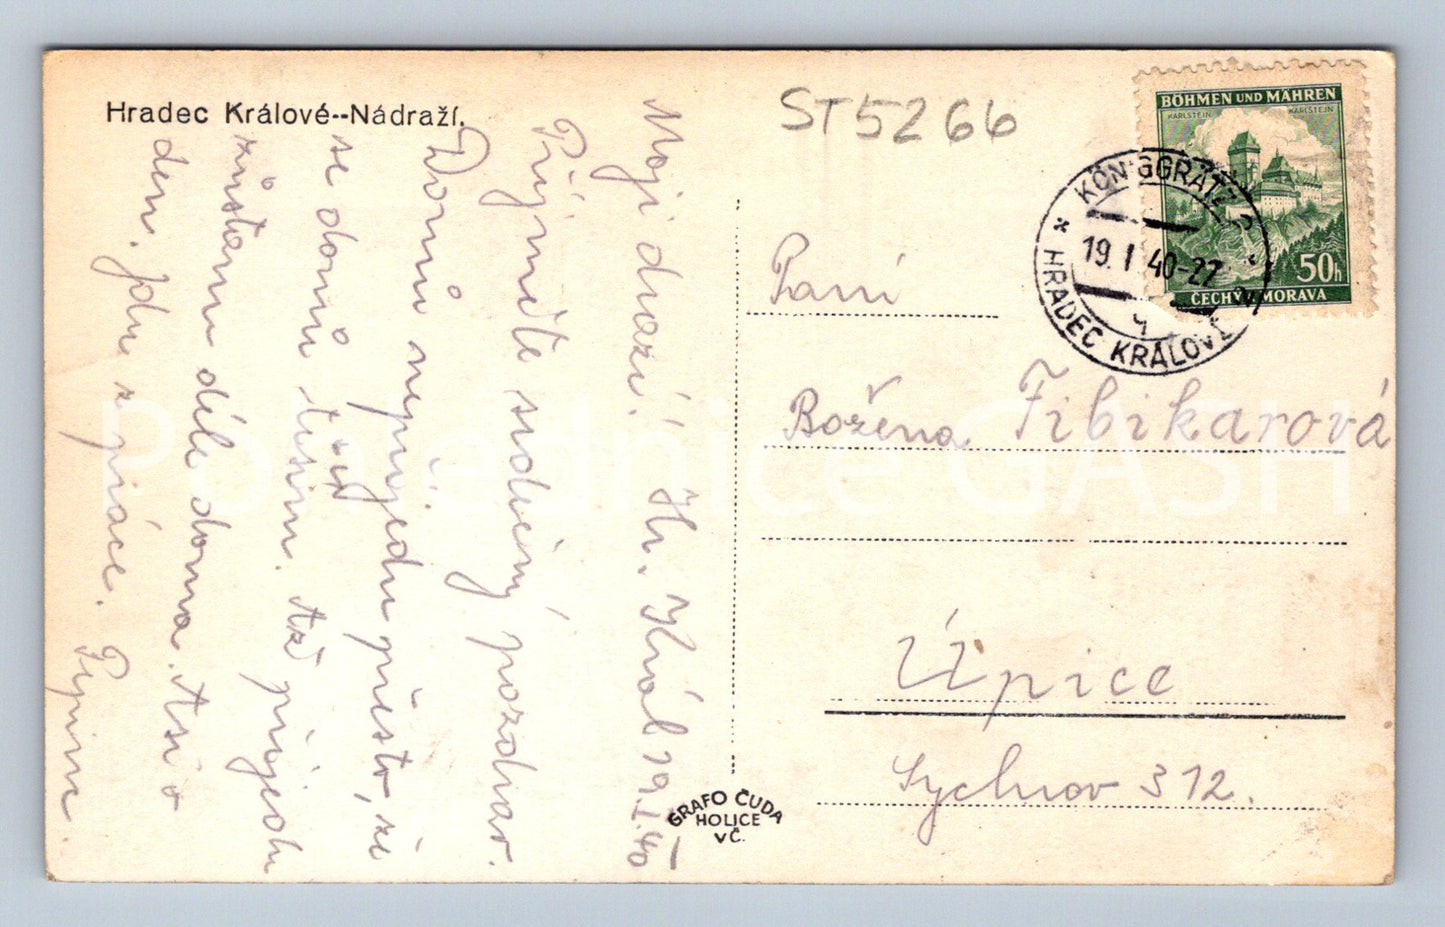 Hradec Králové--Nádraží.
ST5266
BÖHMEN UND MÄHREN
KARLSTEIN KARLSTEJN
50h
ČECHY MORAVA
KÖNIGGRÄTZ 2
19. I 40-22
HRADEC KRÁLOVÉ 2
Moji drazí! Hr. Král 19.I.40
Přijměte srdečný pozdrav.
Domů nepřijedu přesto, že
se domů těším. Až přijedu
zůstanu déle doma. Asi o
den. Jdu z práce.
Paní
Božena Fibikarová
Úpice
Sychrov 312.
GRAFO ČUDA
HOLICE
VČ.
Pohlednice GASH